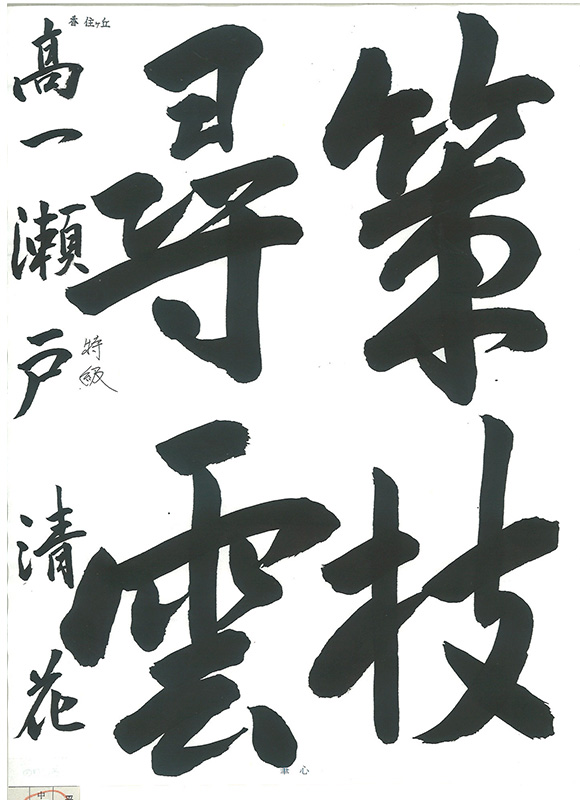 策技
尋雲
特級
高一瀬戸清花
香住ヶ丘
筆心
中